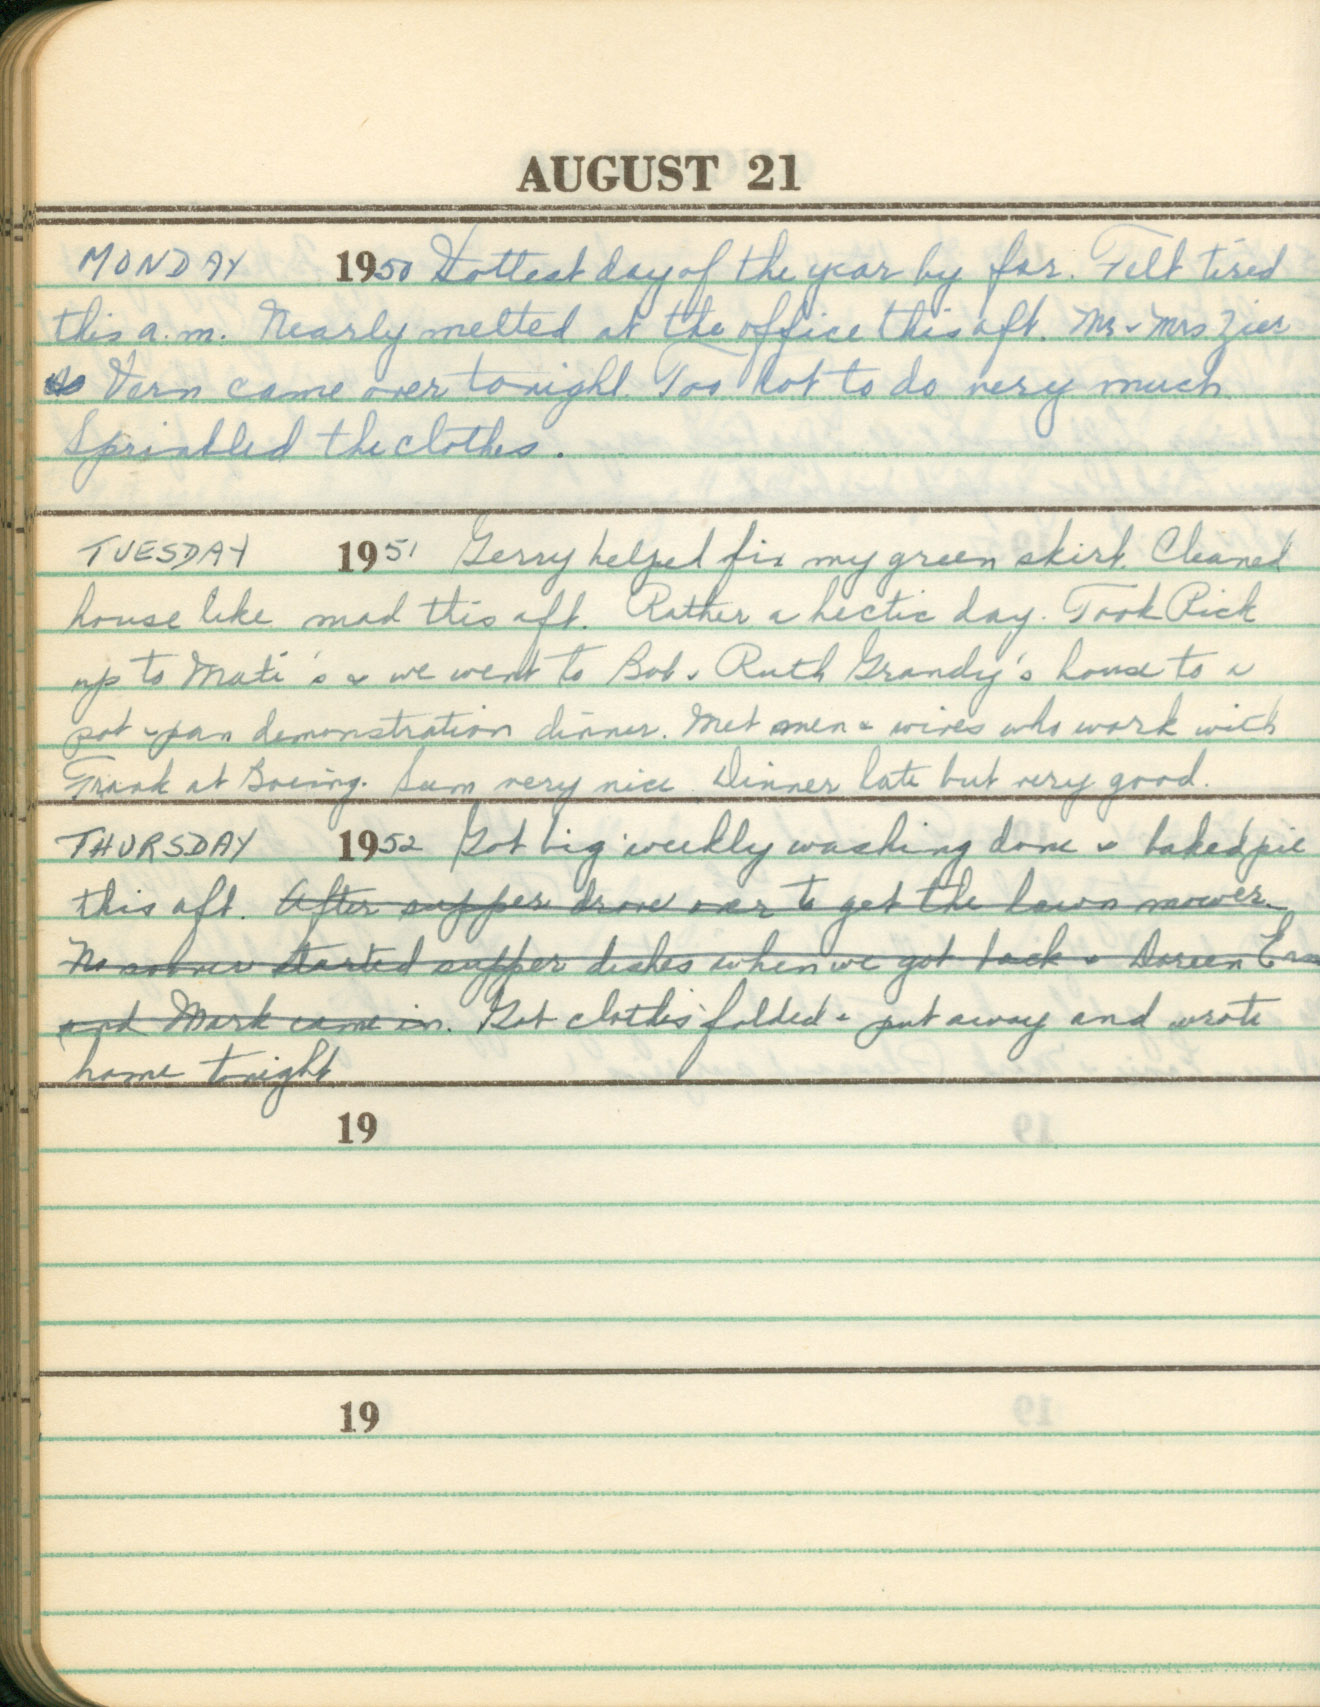 AUGUST 21
MONDAY 1950 Hottest day of the year by far. Felt tired
this a.m. Nearly melted at the office this aft. Mr & Mrs Zier
& Vern came over tonight. Too hot to do very much
Sprinkled the clothes.
TUESDAY 1951 Gerry helped fix my green skirt. Cleaned
house like mad this aft. Rather a hectic day. Took Rick
up to Mati's & we went to Bob & Ruth Grandy's house to a
pot & pan demonstration dinner. Met men & wives who work with
Frank at Boeing. Seem very nice. Dinner late but very good.
THURSDAY 1952 Got big weekly washing done & baked pie
this aft. After supper drove over to get the lawn mower.
No sooner started supper dishes when we got back & Doreen
and Mark came in. Got clothes folded & put away and wrote
home tonight
19
19